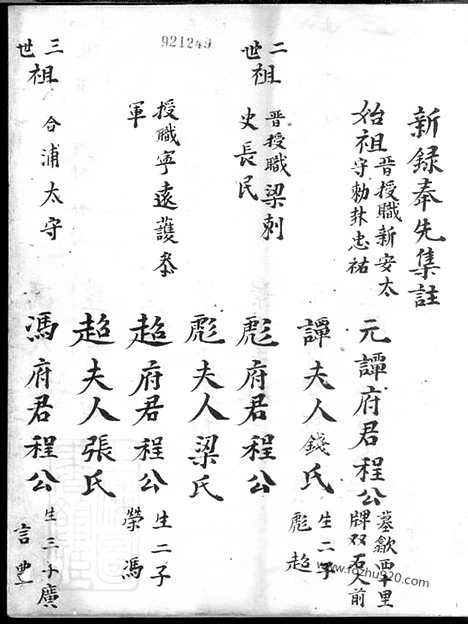 921249
新錄奉先集註
始祖
晋授職新安太
守勅封忠祐
元譚府君程公
墓歙西十里
牌双石人前
譚夫人錢氏
生二子
彪 超
二世祖
晋授職梁刺
史長民
彪府君程公
彪夫人梁氏
授職寧遠護叅
軍
超府君程公
生二子
榮 馮
超夫人張氏
三世祖
合浦太守
馮府君程公
生三子廣
言 豊
www.fozhu920.com